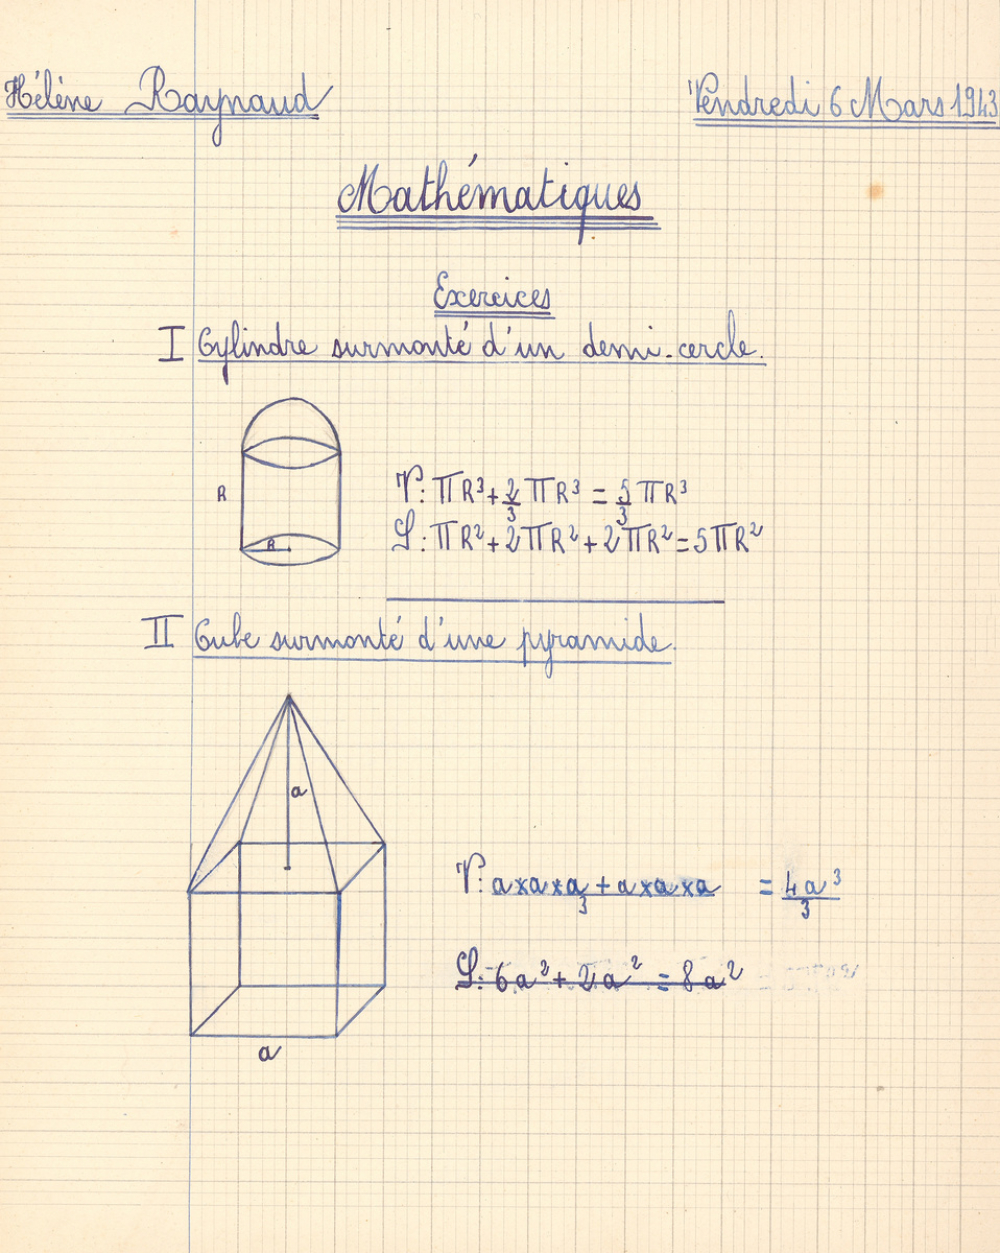 Hélène Raynaud
Vendredi 6 Mars 1943
Mathématiques
Exercices
I Cylindre surmonté d'un demi-cercle.
R
R
V: πR³ + 2/3 πR³ = 5/3 πR³
S: πR² + 2πR² + 2πR² = 5πR²
II Cube surmonté d'une pyramide.
a
a
V: a×a×a + a×a×a / 3 = 4a³/3
S: 6a² + 2a² = 8a²